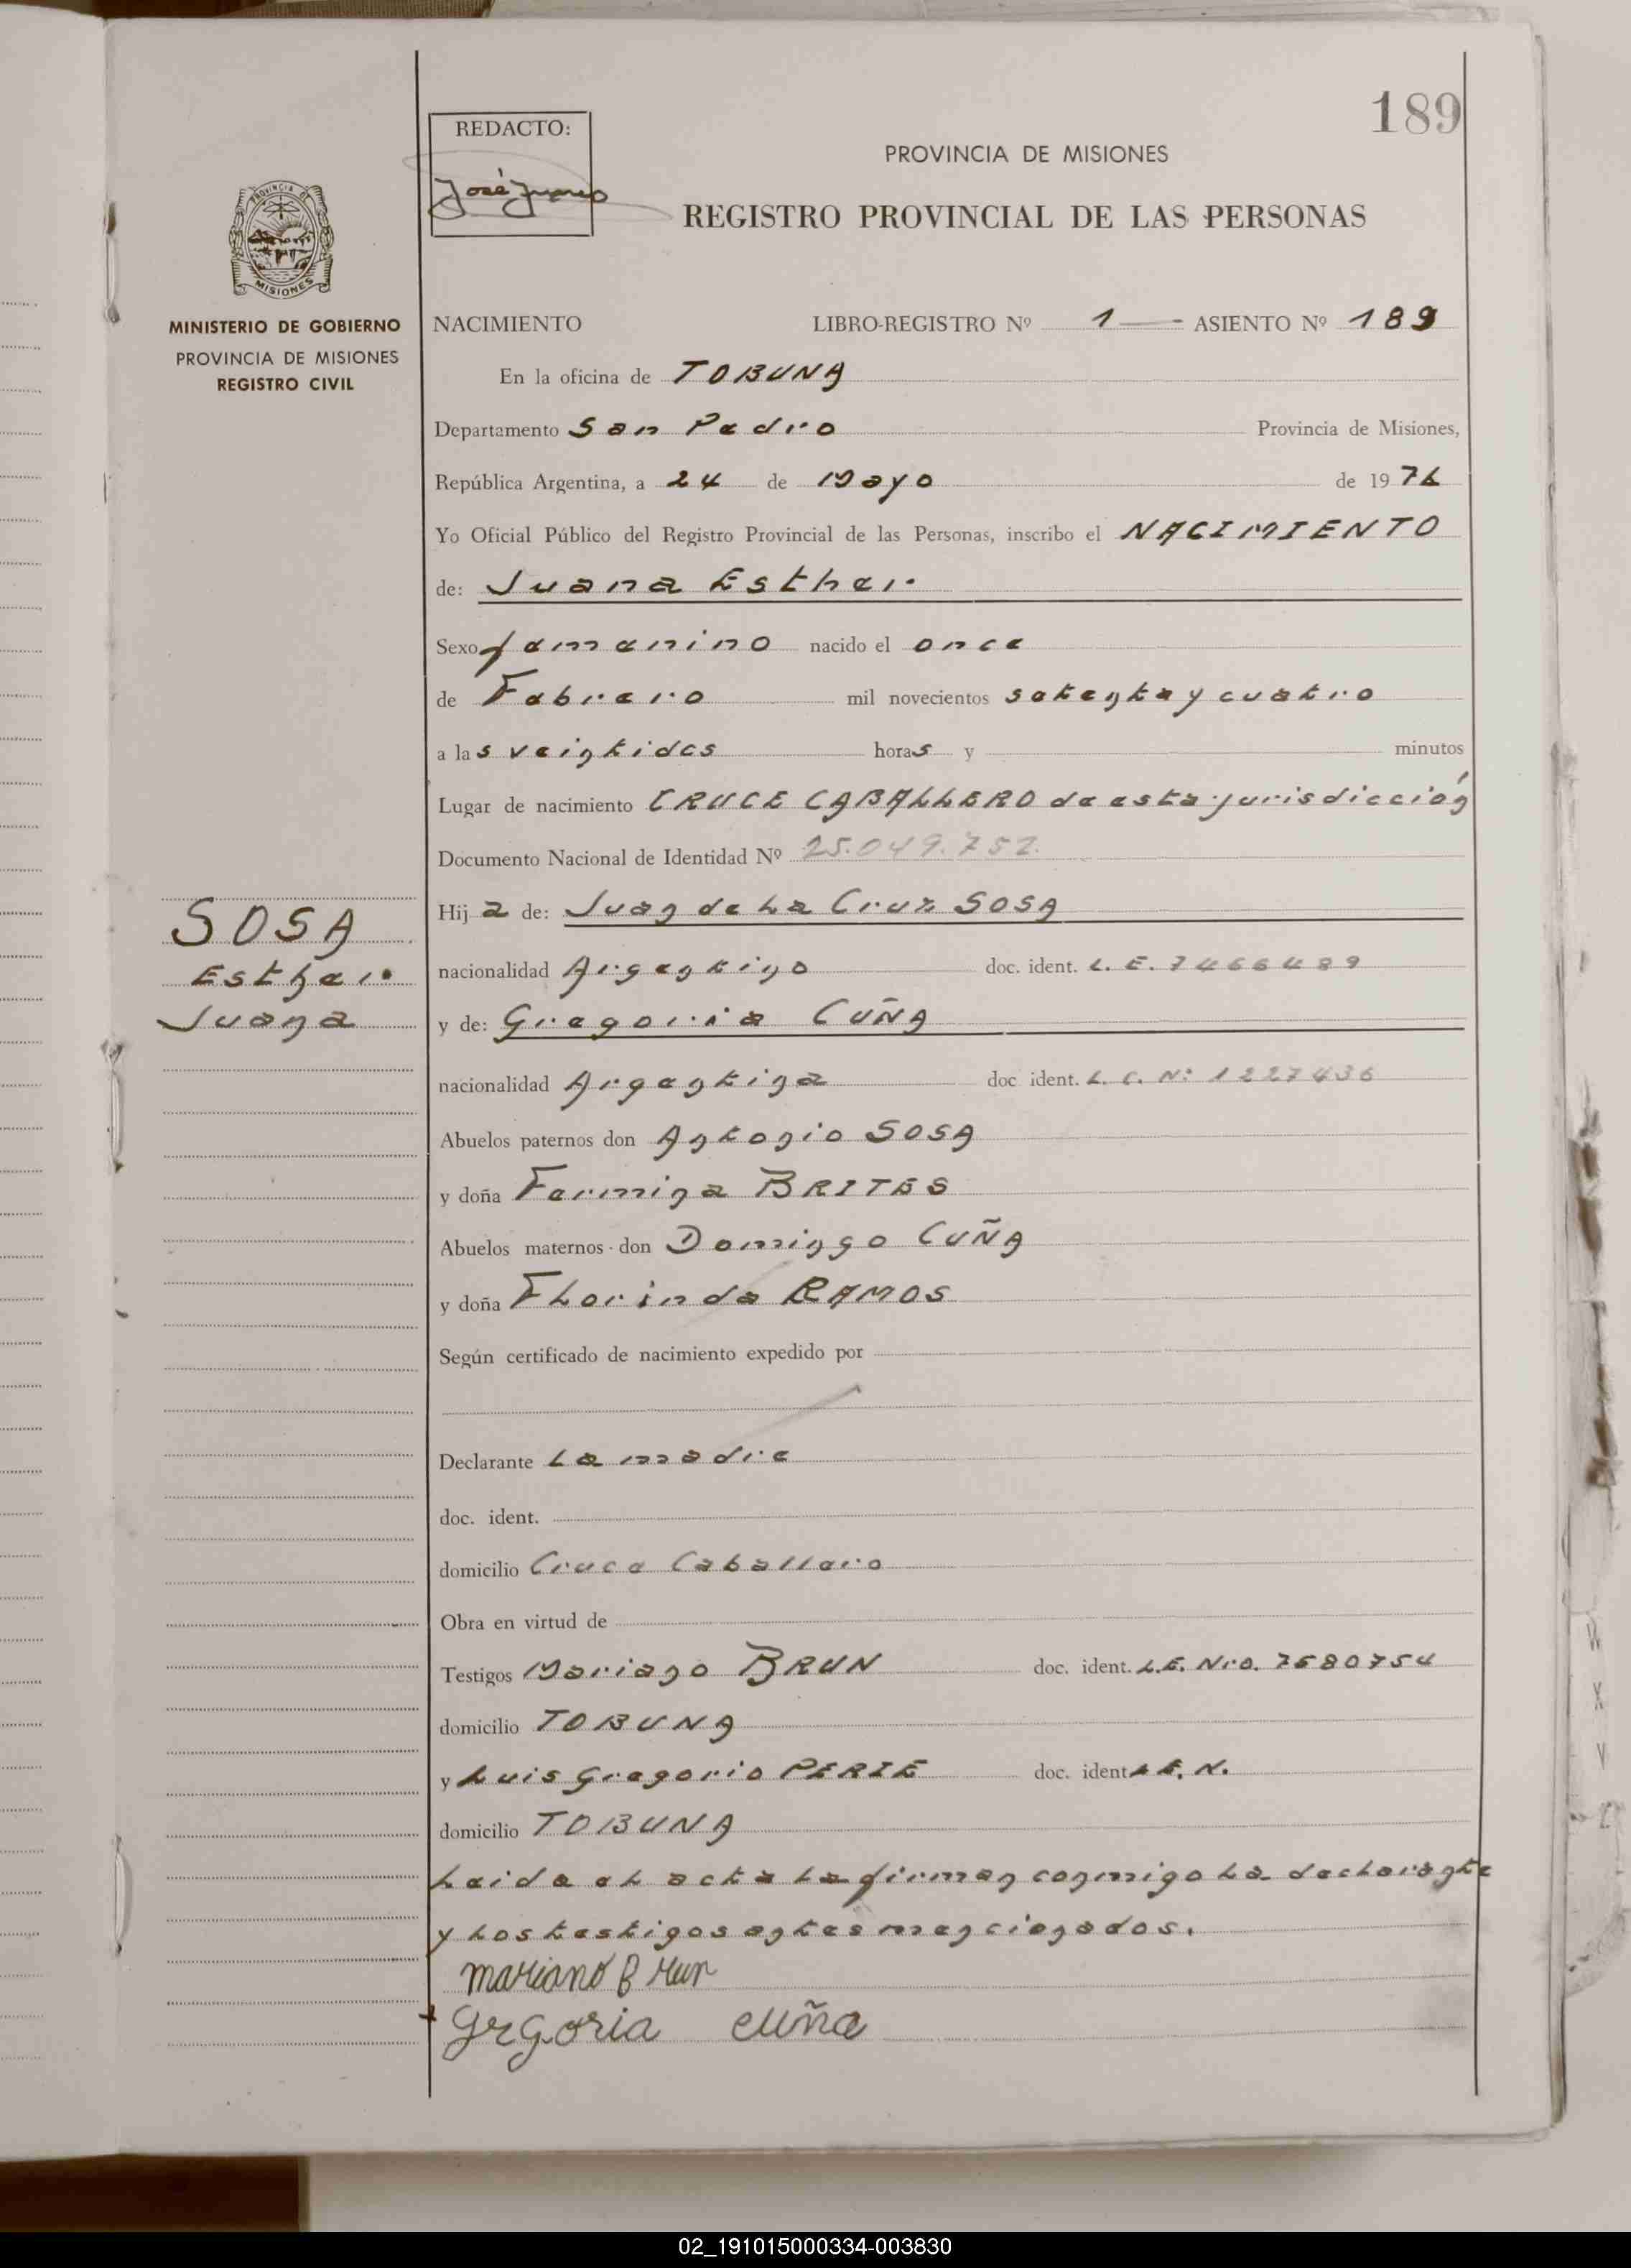 189
REDACTO:
José
PROVINCIA DE MISIONES
REGISTRO PROVINCIAL DE LAS PERSONAS
PROVINCIA DE
MISIONES
MINISTERIO DE GOBIERNO
PROVINCIA DE MISIONES
REGISTRO CIVIL
NACIMIENTO LIBRO-REGISTRO Nº 1 — ASIENTO Nº 189
En la oficina de TOBUNA
Departamento San Pedro Provincia de Misiones,
República Argentina, a 24 de Mayo de 1976
Yo Oficial Público del Registro Provincial de las Personas, inscribo el NACIMIENTO
de: Juana Esther
Sexo femenino nacido el once
de Febrero mil novecientos setenta y cuatro
a las veintidos horas y minutos
Lugar de nacimiento CRUCE CABALLERO de esta jurisdicción
Documento Nacional de Identidad Nº 25.049.752.
Hija de: Juan de La Cruz SOSA
SOSA
Esther
Juana
nacionalidad Argentino doc. ident. L. E. 7466489
y de: Gregoria CUÑA
nacionalidad Argentina doc ident. L. C. Nº 1227436
Abuelos paternos don Antonio SOSA
y doña Fermina BRITES
Abuelos maternos don Domingo CUÑA
y doña FLorinda RAMOS
Según certificado de nacimiento expedido por
Declarante La madre
doc. ident.
domicilio Cruce Caballero
Obra en virtud de
Testigos Mariano BRUN doc. ident. L.E. Nro. 7580754
domicilio TOBUNA
y Luis Gregorio PERIE doc. ident L E. N.
domicilio TOBUNA
Leida eL acta La firman conmigo La decLarante
y Los testigos antes mencionados.
mariano Brun
+ Grgoria cuña
02_191015000334-003830